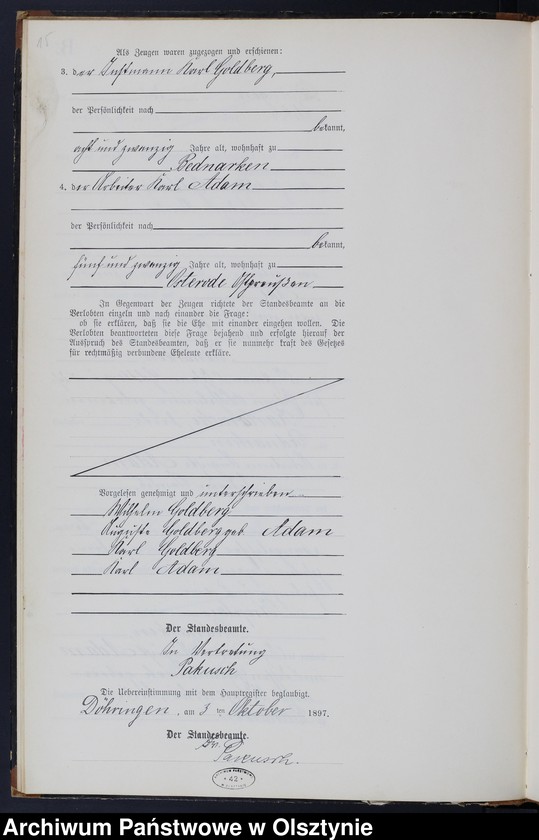 15
Als Zeugen waren zugezogen und erschienen:
3. der Instmann Karl Goldberg,
der Persönlichkeit nach
bekannt,
acht und zwanzig Jahre alt, wohnhaft zu
Bednarken
4. der Arbeiter Karl Adam
der Persönlichkeit nach
bekannt,
fünf und zwanzig Jahre alt, wohnhaft zu
Osterode Ostpreußen
In Gegenwart der Zeugen richtete der Standesbeamte an die
Verlobten einzeln und nach einander die Frage:
ob sie erklären, daß sie die Ehe mit einander eingehen wollen. Die
Verlobten beantworteten diese Frage bejahend und erfolgte hierauf der
Ausspruch des Standesbeamten, daß er sie nunmehr kraft des Gesetzes
für rechtmäßig verbundene Eheleute erkläre.
Vorgelesen genehmigt und unterschrieben
Wilhelm Goldberg
Auguste Goldberg geb. Adam
Karl Goldberg
Karl Adam
Der Standesbeamte.
In Vertretung
Pakusch
Die Uebereinstimmung mit dem Hauptregister beglaubigt.
Döhringen, am 3 ten Oktober 1897.
Der Standesbeamte.
Pakusch.
42
Archiwum Państwowe w Olsztynie